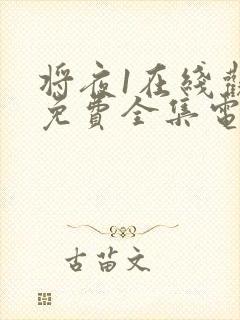 将夜1在线觀
免費全集電
古苗文